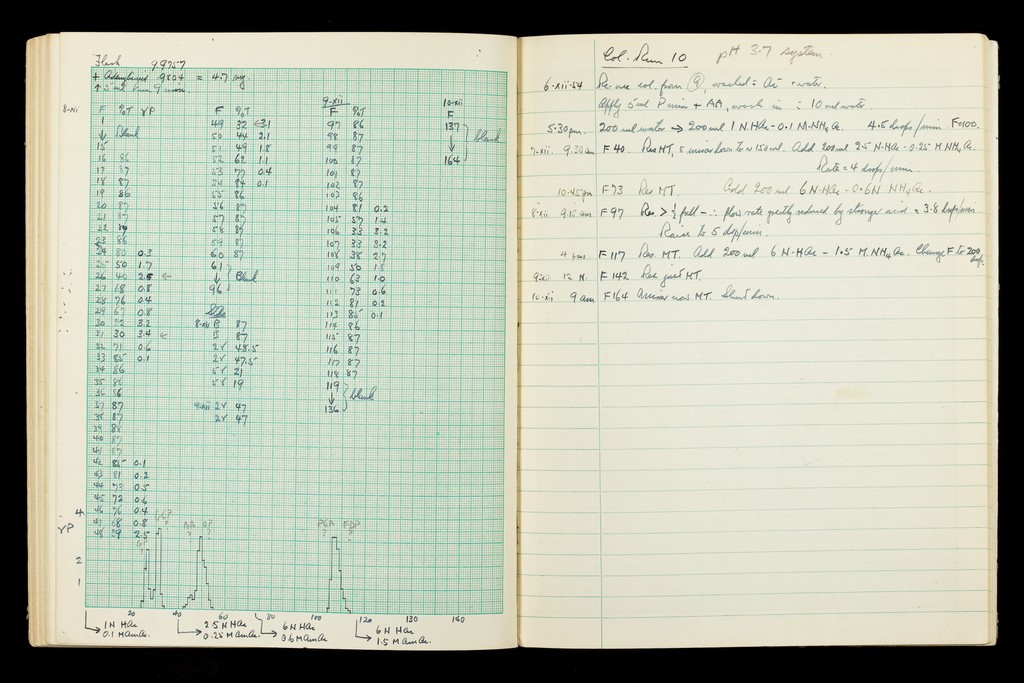 Flask 99757
+ Adenylic acid .9804 = 4.7 mg.
8-xii F %T γP
1
↓ blank
15
16 86
17 87
18 87
19 86
20 87
21 87
22 87
23 86
24 80 0.3
25 50 1.7
26 40 2.5 ←
27 68 0.8
28 76 0.4
29 67 0.8
30 32 3.2
31 30 3.4 ←
32 71 0.6
33 85 0.1
34 86
35 86
36 86
37 87
38 87
39 88
40 87
41 87
42 85 0.1
43 81 0.2
44 73 0.5
45 72 0.6
46 76 0.4
47 68 0.8
48 39 2.5
F %T
49 32 ←3.1
50 44 2.1
51 49 1.8
52 62 1.1
53 77 0.4
54 84 0.1
55 86
56 87
57 87
58 87
59 87
60 87
61
↓ blank
96
Stds
8-xii B 87
B 87
2γ 48.5
2γ 47.5
5γ 21
5γ 19
9-xii 2γ 47
2γ 47
9-xii
F %T
97 86
98 87
99 87
100 87
101 87
102 87
103 86
104 81 0.2
105 57 1.4
106 33 3.2
107 33 3.2
108 38 2.7
109 50 1.8
110 63 1.0
111 73 0.6
112 81 0.2
113 85 0.1
114 86
115 87
116 87
117 87
118 87
119
↓ blank
136
10-xii
F
137
↓ blank
164
4
γP
2
1
G6P?
AA ?
PGA ?
FDP ?
20 40 60 80 100 120 130 140
1 N HAc
0.1 M AmAc.
2.5 N HAc
0.25 M AmAc.
6 N HAc
0.6 M AmAc.
6 N HAc
1.5 M AmAc.
Col. Run 10 pH 3.7 system
6-xii-54 Re-use col. from 9, washed water.
Apply 5 ml P mix + AA, wash in 10 ml water.
5.30pm. 200 ml water → 200 ml 1 N.HAc - 0.1 M-NH4Ac. 4.5 drops/min F=100.
7-xii. 9.30am F 40. Res MT, down to ~150 ml. Add 200 ml 2.5 N.HAc - 0.25 M NH4Ac.
Rate = 4 drops/min.
10.45pm F 73 Res MT. Add 200 ml 6 N-HAc - 0.6N NH4Ac.
8-xii 9.15 am F 97 Res. > ½ full - ∴ flow rate greatly reduced by stronger acid = 3.8 drops/min
Raise to 5 drp/min.
4 pm F 117 Res. MT. Add 200 ml 6 N-HAc - 1.5 M.NH4Ac. Change F to 200 drp.
9-xii 12 N. F 142 Res just MT.
10-xii 9 am F 164 now MT. Shut down.